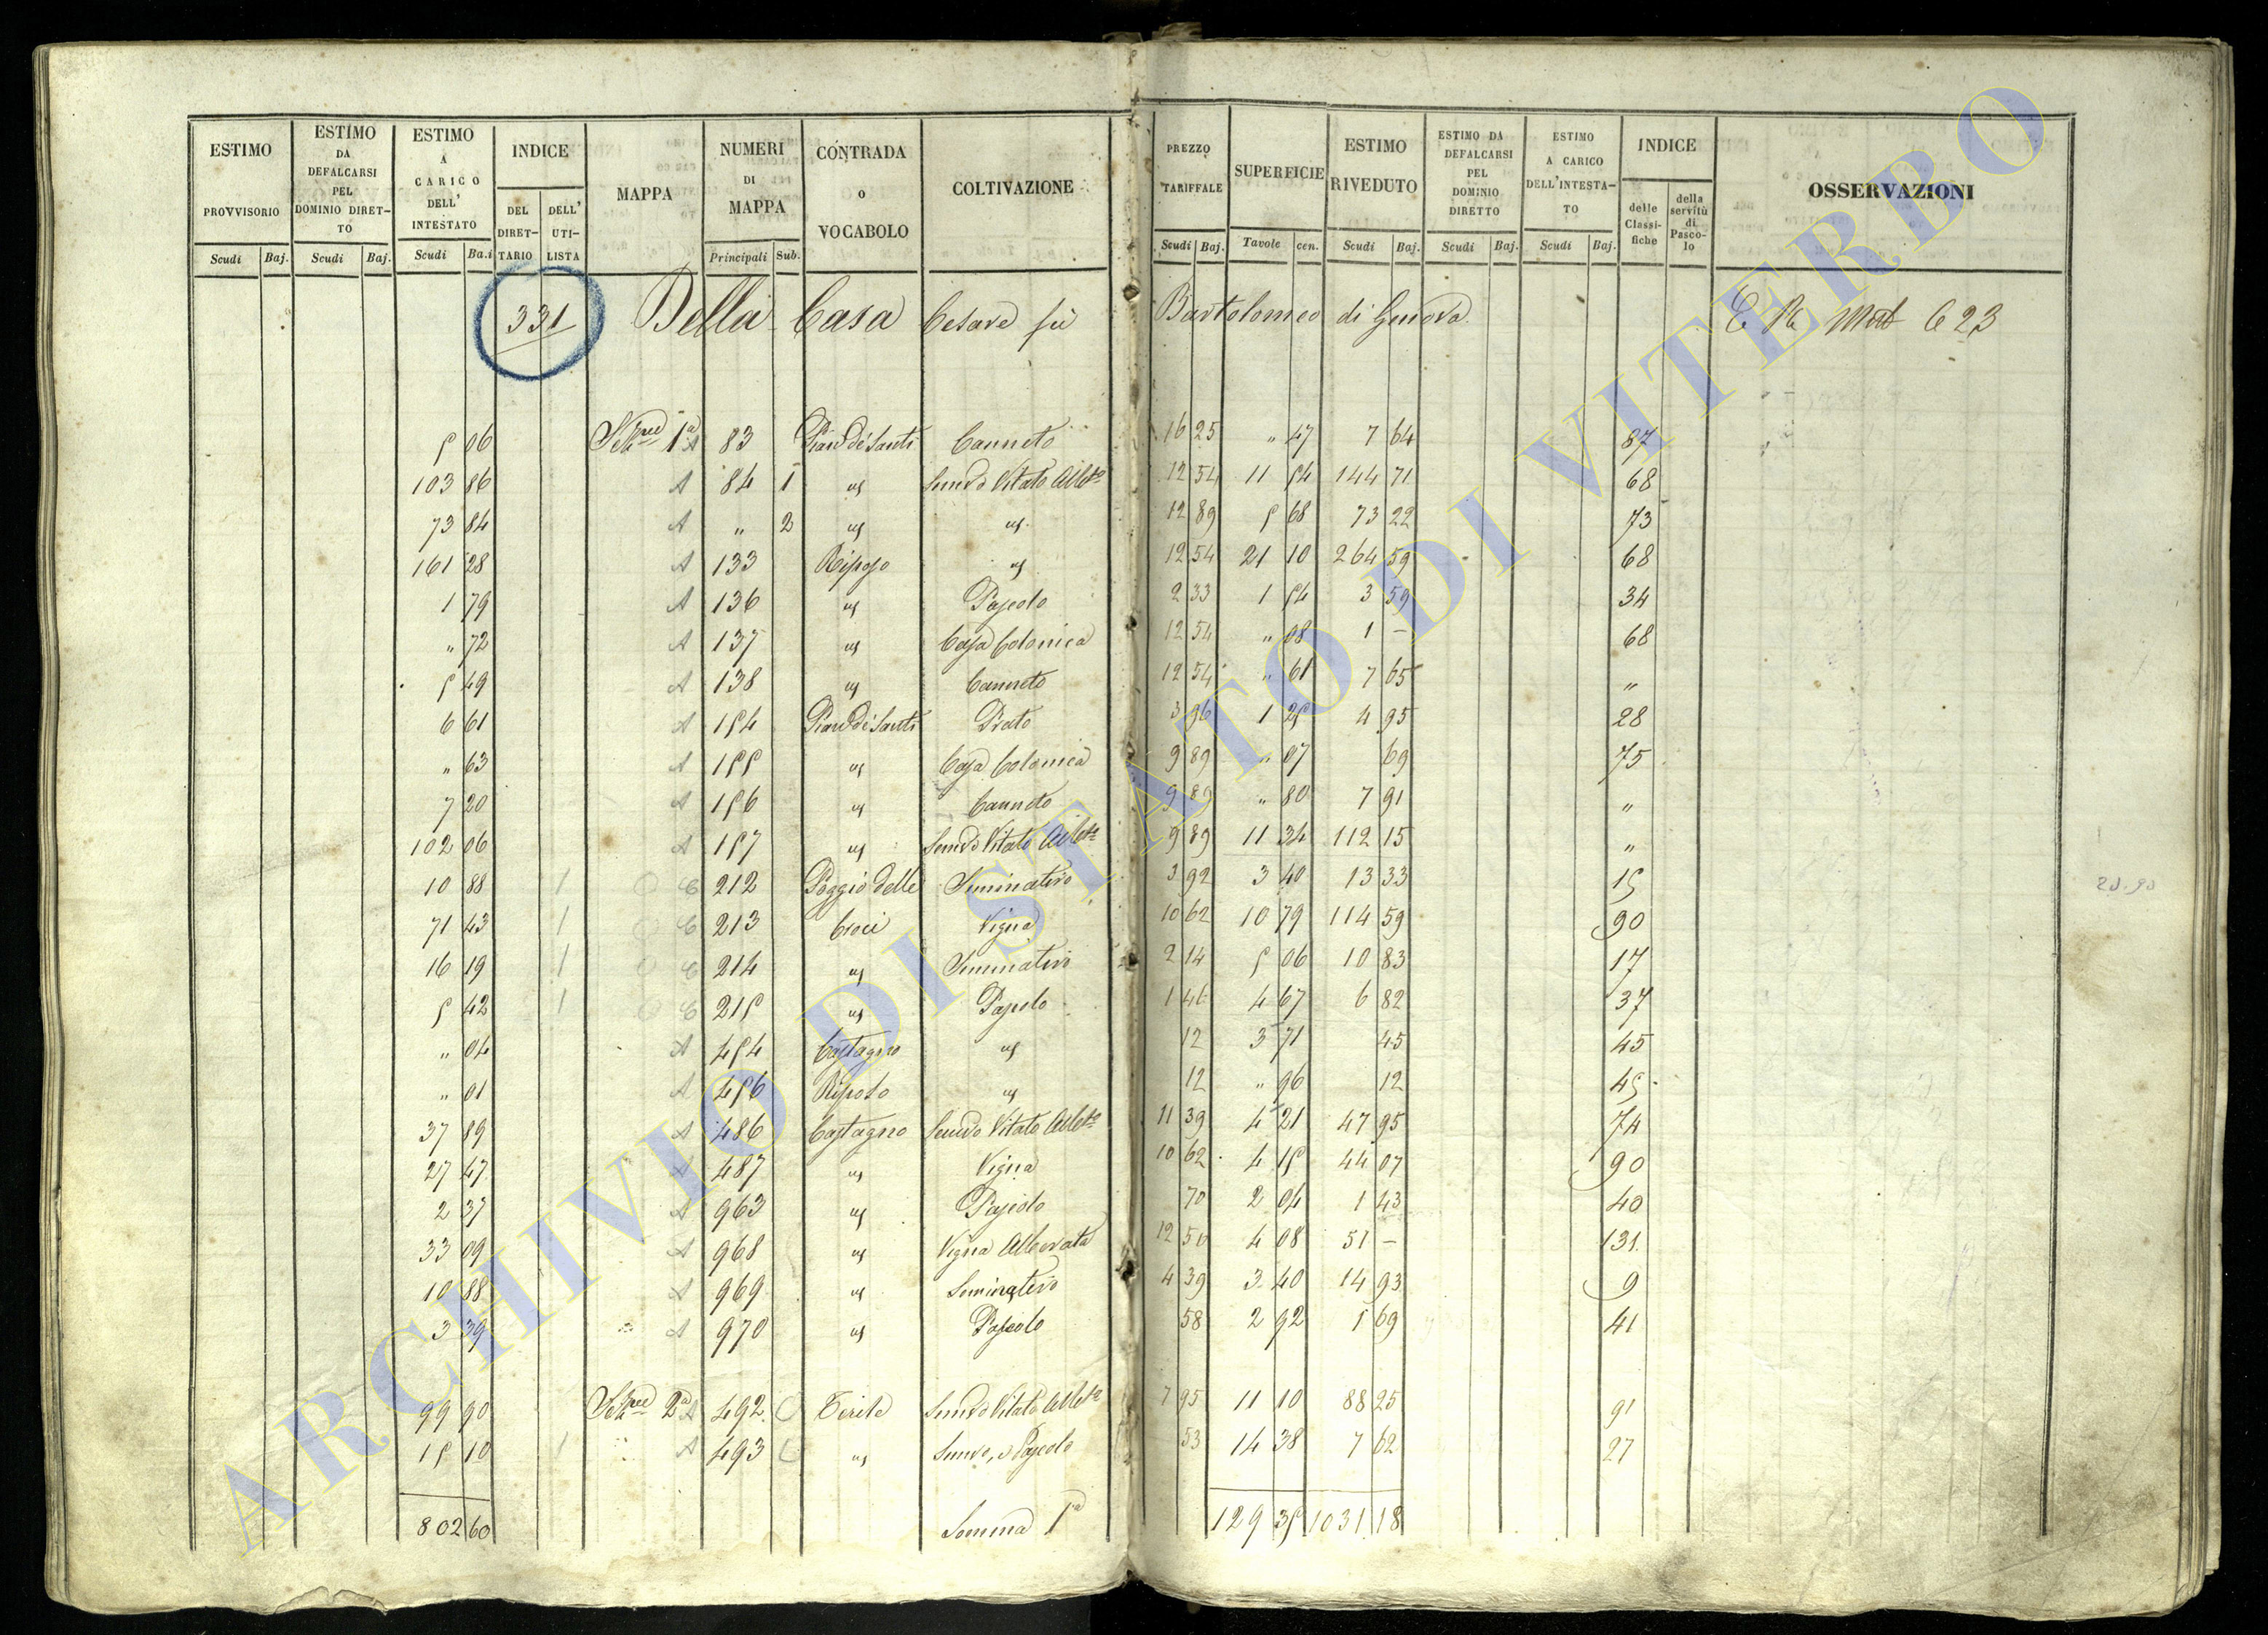 ESTIMO PROVVISORIO | ESTIMO DA DEFALCARSI PEL DOMINIO DIRET-TO | ESTIMO A CARICO DELL' INTESTATO | INDICE | MAPPA | NUMERI DI MAPPA | CONTRADA O VOCABOLO | COLTIVAZIONE | PREZZO TARIFFALE | SUPERFICIE | ESTIMO RIVEDUTO | ESTIMO DA DEFALCARSI PEL DOMINIO DIRETTO | ESTIMO A CARICO DELL'INTESTA-TO | INDICE | OSSERVAZIONI
Scudi | Baj. | Scudi | Baj. | Scudi | Ba.i | DEL DIRET-TARIO | DELL' UTI-LISTA | Principali | Sub. | Scudi | Baj. | Tavole | cen. | Scudi | Baj. | Scudi | Baj. | Scudi | Baj. | delle Classi-fiche | della servitù di Pasco-lo
331 Della Casa Cesare fù Bartolomeo di Genova C 23
5 06 | Sezne 1a A | 83 | Pian de' Santi | Canneto | 16 25 | " 47 | 7 64 | 87
103 86 | A | 84 | 1 | us | Semvo Vitato Albto | 12 54 | 11 54 | 144 71 | 68
73 84 | A | " | 2 | us | us | 12 89 | 5 68 | 73 22 | 73
161 28 | A | 133 | Riposo | us | 12 54 | 21 10 | 264 59 | 68
1 79 | A | 136 | us | Pascolo | 2 33 | 1 54 | 3 59 | 34
" 72 | A | 137 | us | Casa Colonica | 12 54 | " 08 | 1 – | 68
5 49 | A | 138 | us | Canneto | 12 54 | " 61 | 7 65 | "
6 61 | A | 154 | Pian de' Santi | Prato | 3 96 | 1 25 | 4 95 | 28
" 63 | A | 155 | us | Casa Colonica | 9 89 | " 07 | 69 | 75
7 20 | A | 156 | us | Canneto | 9 89 | " 80 | 7 91 | "
102 06 | A | 157 | us | Semvo Vitato Albto | 9 89 | 11 34 | 112 15 | "
10 88 | 1 | C | 212 | Poggio delle | Seminativo | 3 92 | 3 40 | 13 33 | 15
71 43 | 1 | C | 213 | Croci | Vigna | 10 62 | 10 79 | 114 59 | 90
16 19 | 1 | C | 214 | us | Seminativo | 2 14 | 5 06 | 10 83 | 17
5 42 | 1 | C | 215 | us | Pascolo | 1 46 | 4 67 | 6 82 | 37
" 04 | A | 454 | Castagno | us | 12 | 3 71 | 45 | 45
" 01 | A | 456 | Riposo | us | 12 | " 96 | 12 | 45
37 89 | A | 486 | Castagno | Semvo Vitato Albto | 11 39 | 4 21 | 47 95 | 74
27 47 | A | 487 | us | Vigna | 10 62 | 4 15 | 44 07 | 90
2 37 | A | 963 | us | Pascolo | 70 | 2 04 | 1 43 | 40
33 09 | A | 968 | us | Vigna Alberata | 12 50 | 4 08 | 51 – | 131
10 88 | A | 969 | us | Seminativo | 4 39 | 3 40 | 14 93 | 9
3 39 | A | 970 | us | Pascolo | 58 | 2 92 | 1 69 | 41
99 90 | Sezne 2a A | 492 | Semvo Vitato Albto | 7 95 | 11 10 | 88 25 | 91
15 10 | 1 | A | 493 | us | Semvo, e Pascolo | 53 | 14 38 | 7 62 | 27
802 60 | Somma 1a | 129 35 | 1031 18
ARCHIVIO DI STATO DI VITERBO